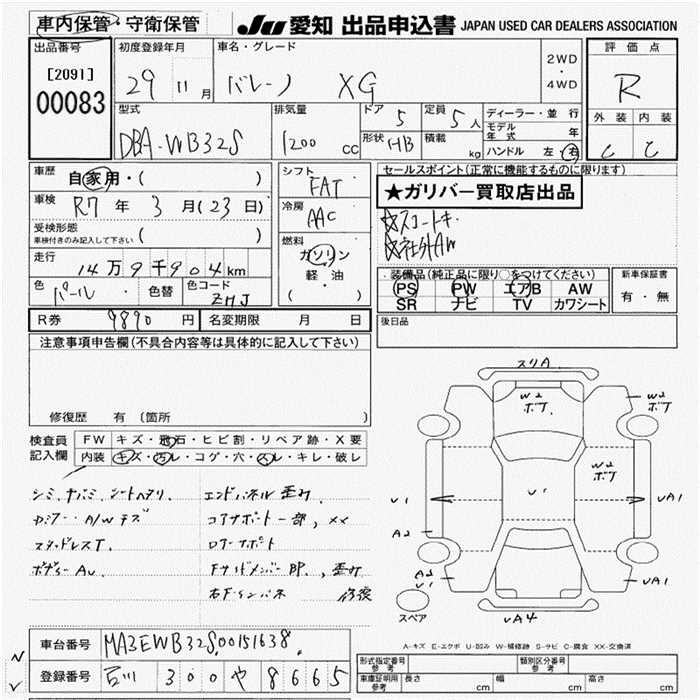 車内保管・守衛保管
JU 愛知 出品申込書 JAPAN USED CAR DEALERS ASSOCIATION
出品番号
[2091]
00083
初度登録年月
29 11 月
車名・グレード
バレーノ XG
2WD
・
4WD
評価点
R
外装 内装
C C
型式
DBA-WB32S
排気量
1200 cc
ドア 5
形状 HB
定員 5 人
積載 kg
ディーラー・並行
モデル年式 年
ハンドル 左・右
車歴 自家用・( )
車検 R7 年 3 月(23 日)
受検形態
車検付きのみ記入して下さい ( )
走行
14 万 9 千 904 km
色 パール ・ 色替 色コード ZMJ
シフト
FAT
冷房
AAC
燃料
ガソリン
軽・油
( ・ )
セールスポイント(正常に機能するものに限ります)
★ガリバー買取店出品
☆スマートキー
☆社外AW
装備品(純正品に限り○をつけてください)
PS PW エアB AW
SR ナビ TV カワシート
新車保証書
有・無
後日品
R券 9890 円 名変期限 月 日
注意事項申告欄(不具合内容等は具体的に記入して下さい)
修復歴 有 〔箇所
検査員
記入欄
FW キズ・飛石・ヒビ割・リペア跡・X要
内装 キズ・汚レ・コゲ・穴・スレ・キレ・破レ
シミ、
スタッドレスT.
エンドパネル 歪み
コアサポート一部, XX
ロアーサポート
右Fインパネ 修復
スリA
W2
ボT
W2
ボT
W2
ボT
U1
U1
UA1
A2
A2
U1
UA1
UA4
スペア
A-キズ E-エクボ U-凹み W-補修跡 S-サビ C-腐食 XX-交換済
車台番号 MA3EWB32S00151638
登録番号 石川 300 や 8665
N
V
形式指定番号
参考
類別区分番号
参考
車庫証明用
参考
長さ cm 幅 cm 高さ cm